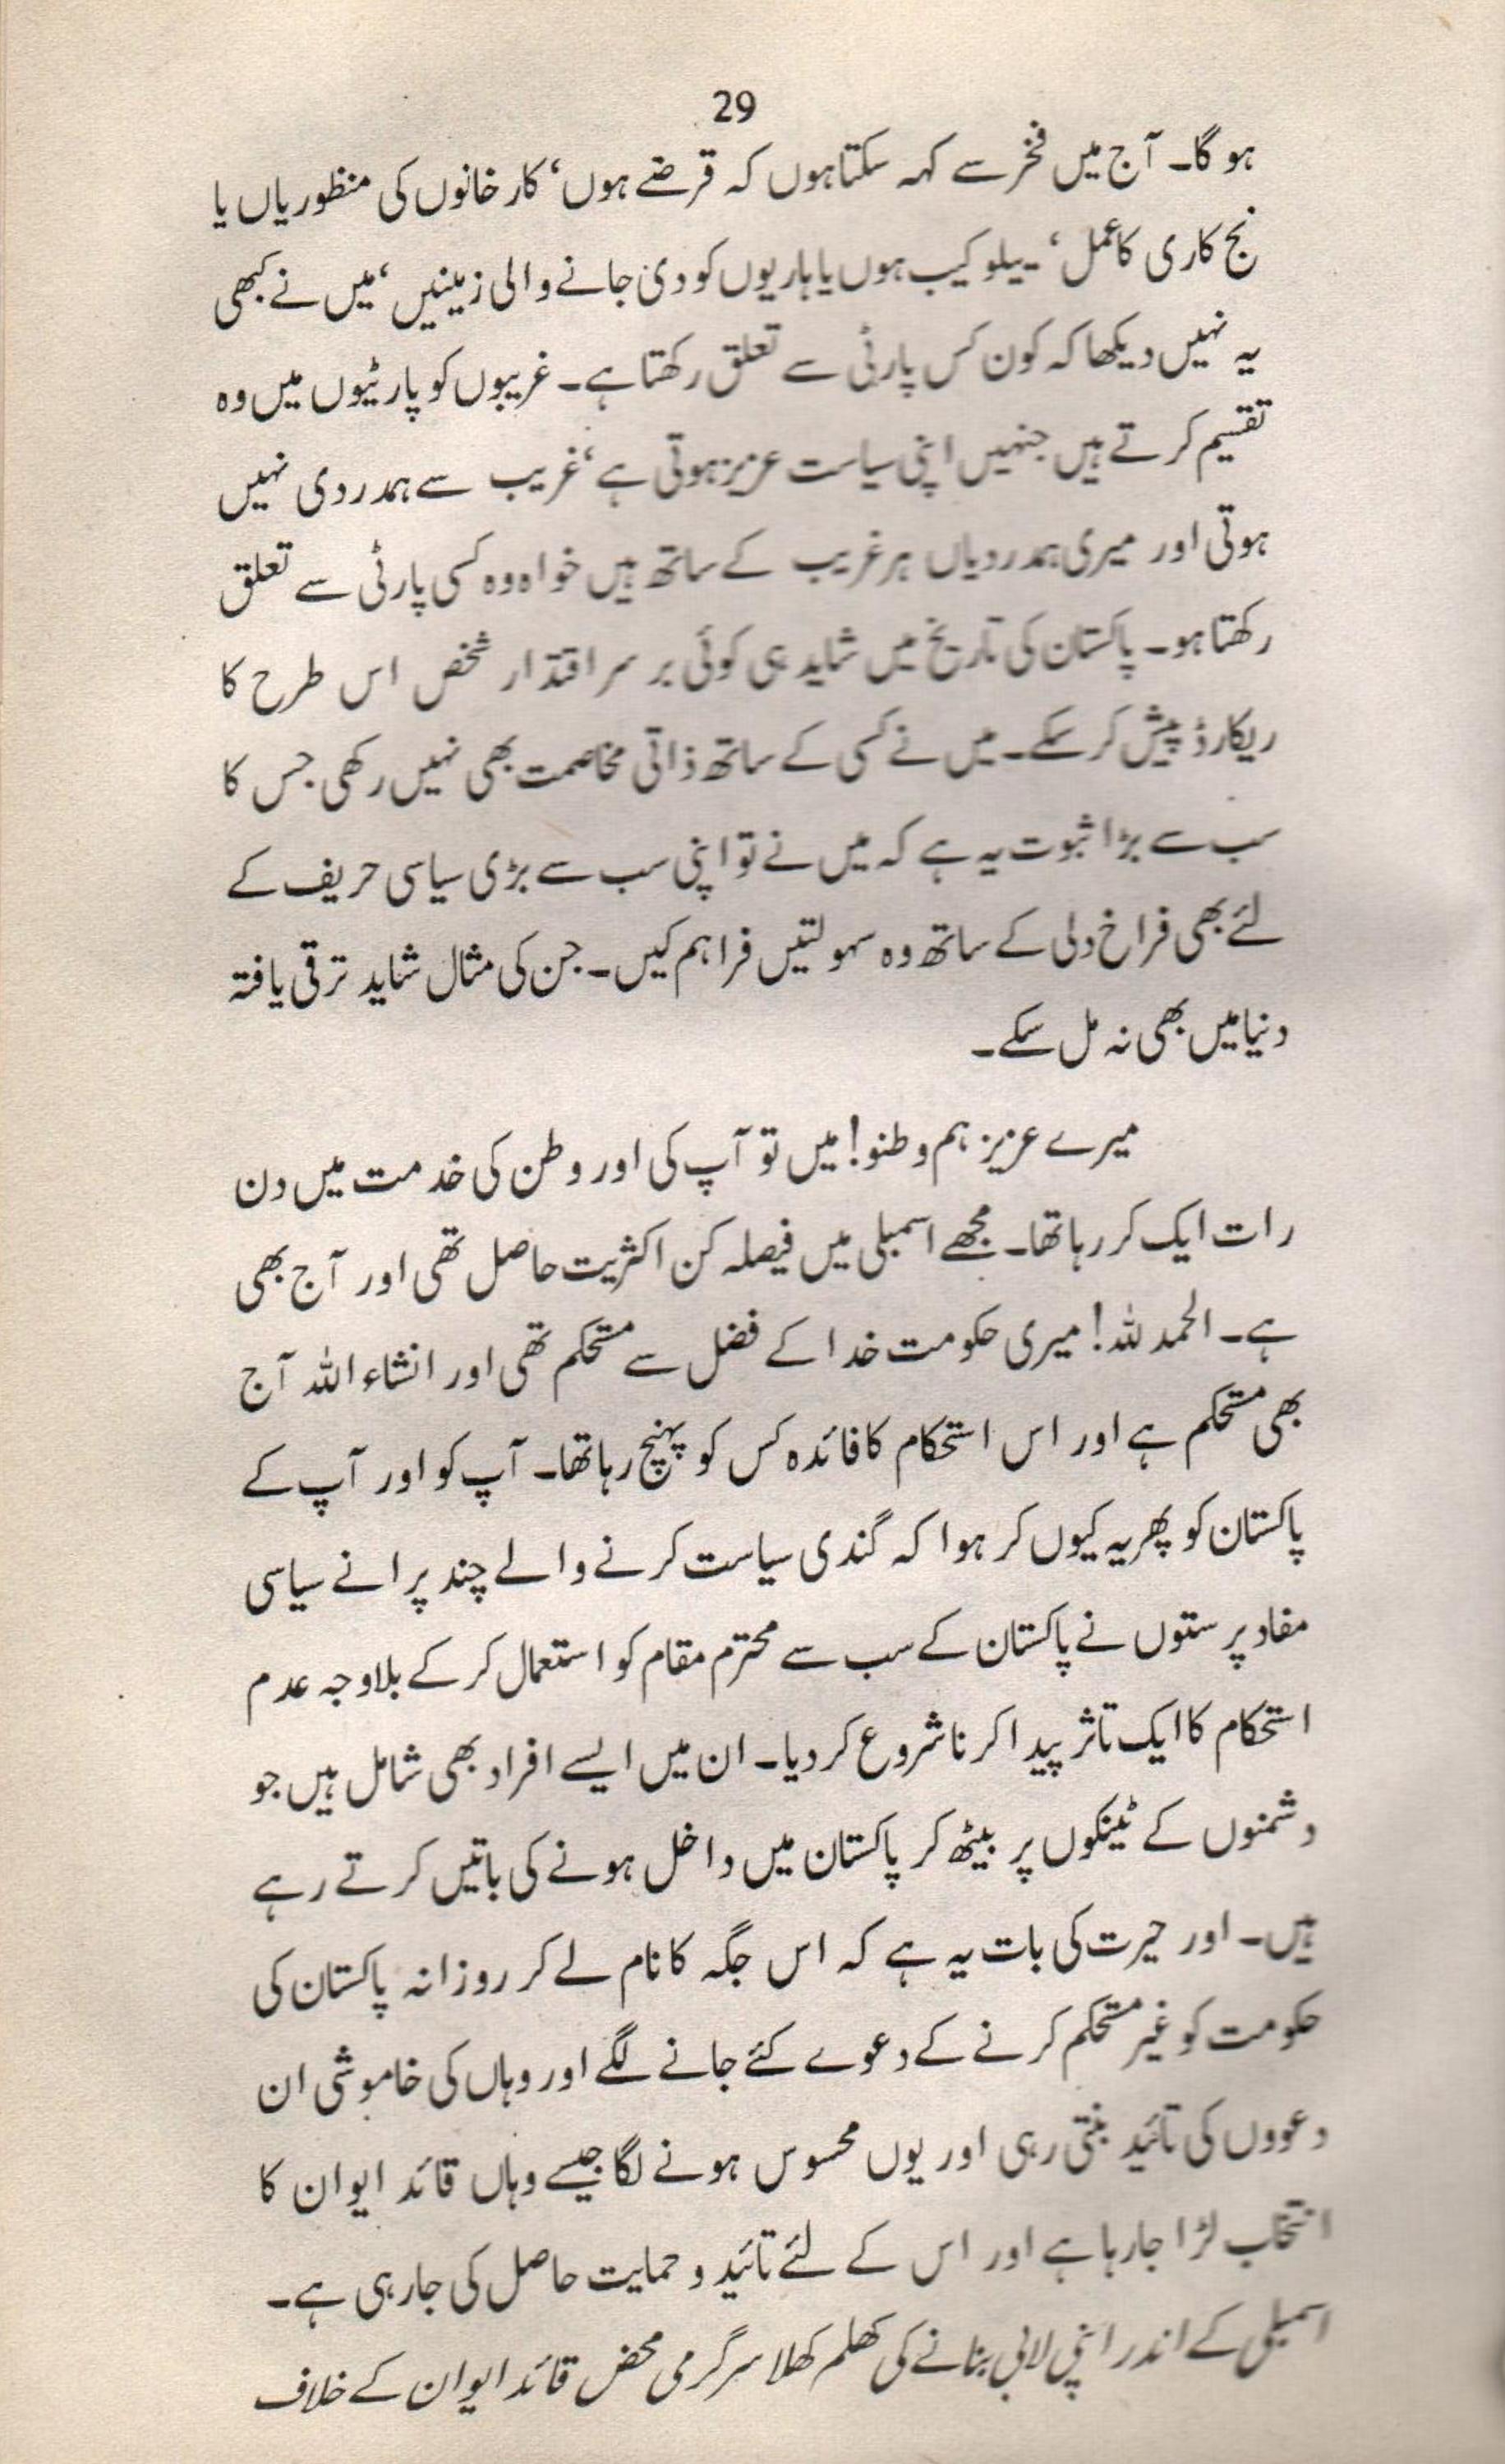 29
ہو گا۔ آج میں فخر سے کہہ سکتا ہوں کہ قرضے ہوں‘ کارخانوں کی منظوریاں یا
نج کاری کا عمل‘۔ ییلو کیب ہوں یا ہاریوں کو دی جانے والی زمینیں‘ میں نے کبھی
یہ نہیں دیکھا کہ کون کس پارٹی سے تعلق رکھتا ہے۔ غریبوں کو پارٹیوں میں وہ
تقسیم کرتے ہیں جنہیں اپنی سیاست عزیز ہوتی ہے‘ غریب سے ہمدردی نہیں
ہوتی اور میری ہمدردیاں ہر غریب کے ساتھ ہیں خواہ وہ کسی پارٹی سے تعلق
رکھتا ہو۔ پاکستان کی تاریخ میں شاید ہی کوئی بر سر اقتدار شخص اس طرح کا
ریکارڈ پیش کر سکے۔ میں نے کسی کے ساتھ ذاتی مخاصمت بھی نہیں رکھی جس کا
سب سے بڑا ثبوت یہ ہے کہ میں نے تو اپنی سب سے بڑی سیاسی حریف کے
لئے بھی فراخ دلی کے ساتھ وہ سہولتیں فراہم کیں۔ جن کی مثال شاید ترقی یافتہ
دنیا میں بھی نہ مل سکے۔
میرے عزیز ہم وطنو! میں تو آپ کی اور وطن کی خدمت میں دن
رات ایک کر رہا تھا۔ مجھے اسمبلی میں فیصلہ کن اکثریت حاصل تھی اور آج بھی
ہے۔ الحمد للہ! میری حکومت خدا کے فضل سے مستحکم تھی اور انشاء اللہ آج
بھی مستحکم ہے اور اس استحکام کا فائدہ کس کو پہنچ رہا تھا۔ آپ کو اور آپ کے
پاکستان کو پھر یہ کیوں کر ہوا کہ گندی سیاست کرنے والے چند پرانے سیاسی
مفاد پرستوں نے پاکستان کے سب سے محترم مقام کو استعمال کر کے بلاوجہ عدم
استحکام کا ایک تاثر پیدا کرنا شروع کر دیا۔ ان میں ایسے افراد بھی شامل ہیں جو
دشمنوں کے ٹینکوں پر بیٹھ کر پاکستان میں داخل ہونے کی باتیں کرتے رہے
ہیں۔ اور حیرت کی بات یہ ہے کہ اس جگہ کا نام لے کر روزانہ پاکستان کی
حکومت کو غیر مستحکم کرنے کے دعوے کئے جانے لگے اور وہاں کی خاموشی ان
دعووں کی تائید بنتی رہی اور یوں محسوس ہونے لگا جیسے وہاں قائد ایوان کا
انتخاب لڑا جا رہا ہے اور اس کے لئے تائید و حمایت حاصل کی جا رہی ہے۔
اسمبلی کے اندر اپنی لابی بنانے کی کھلم کھلا سرگرمی محض قائد ایوان کے خلاف